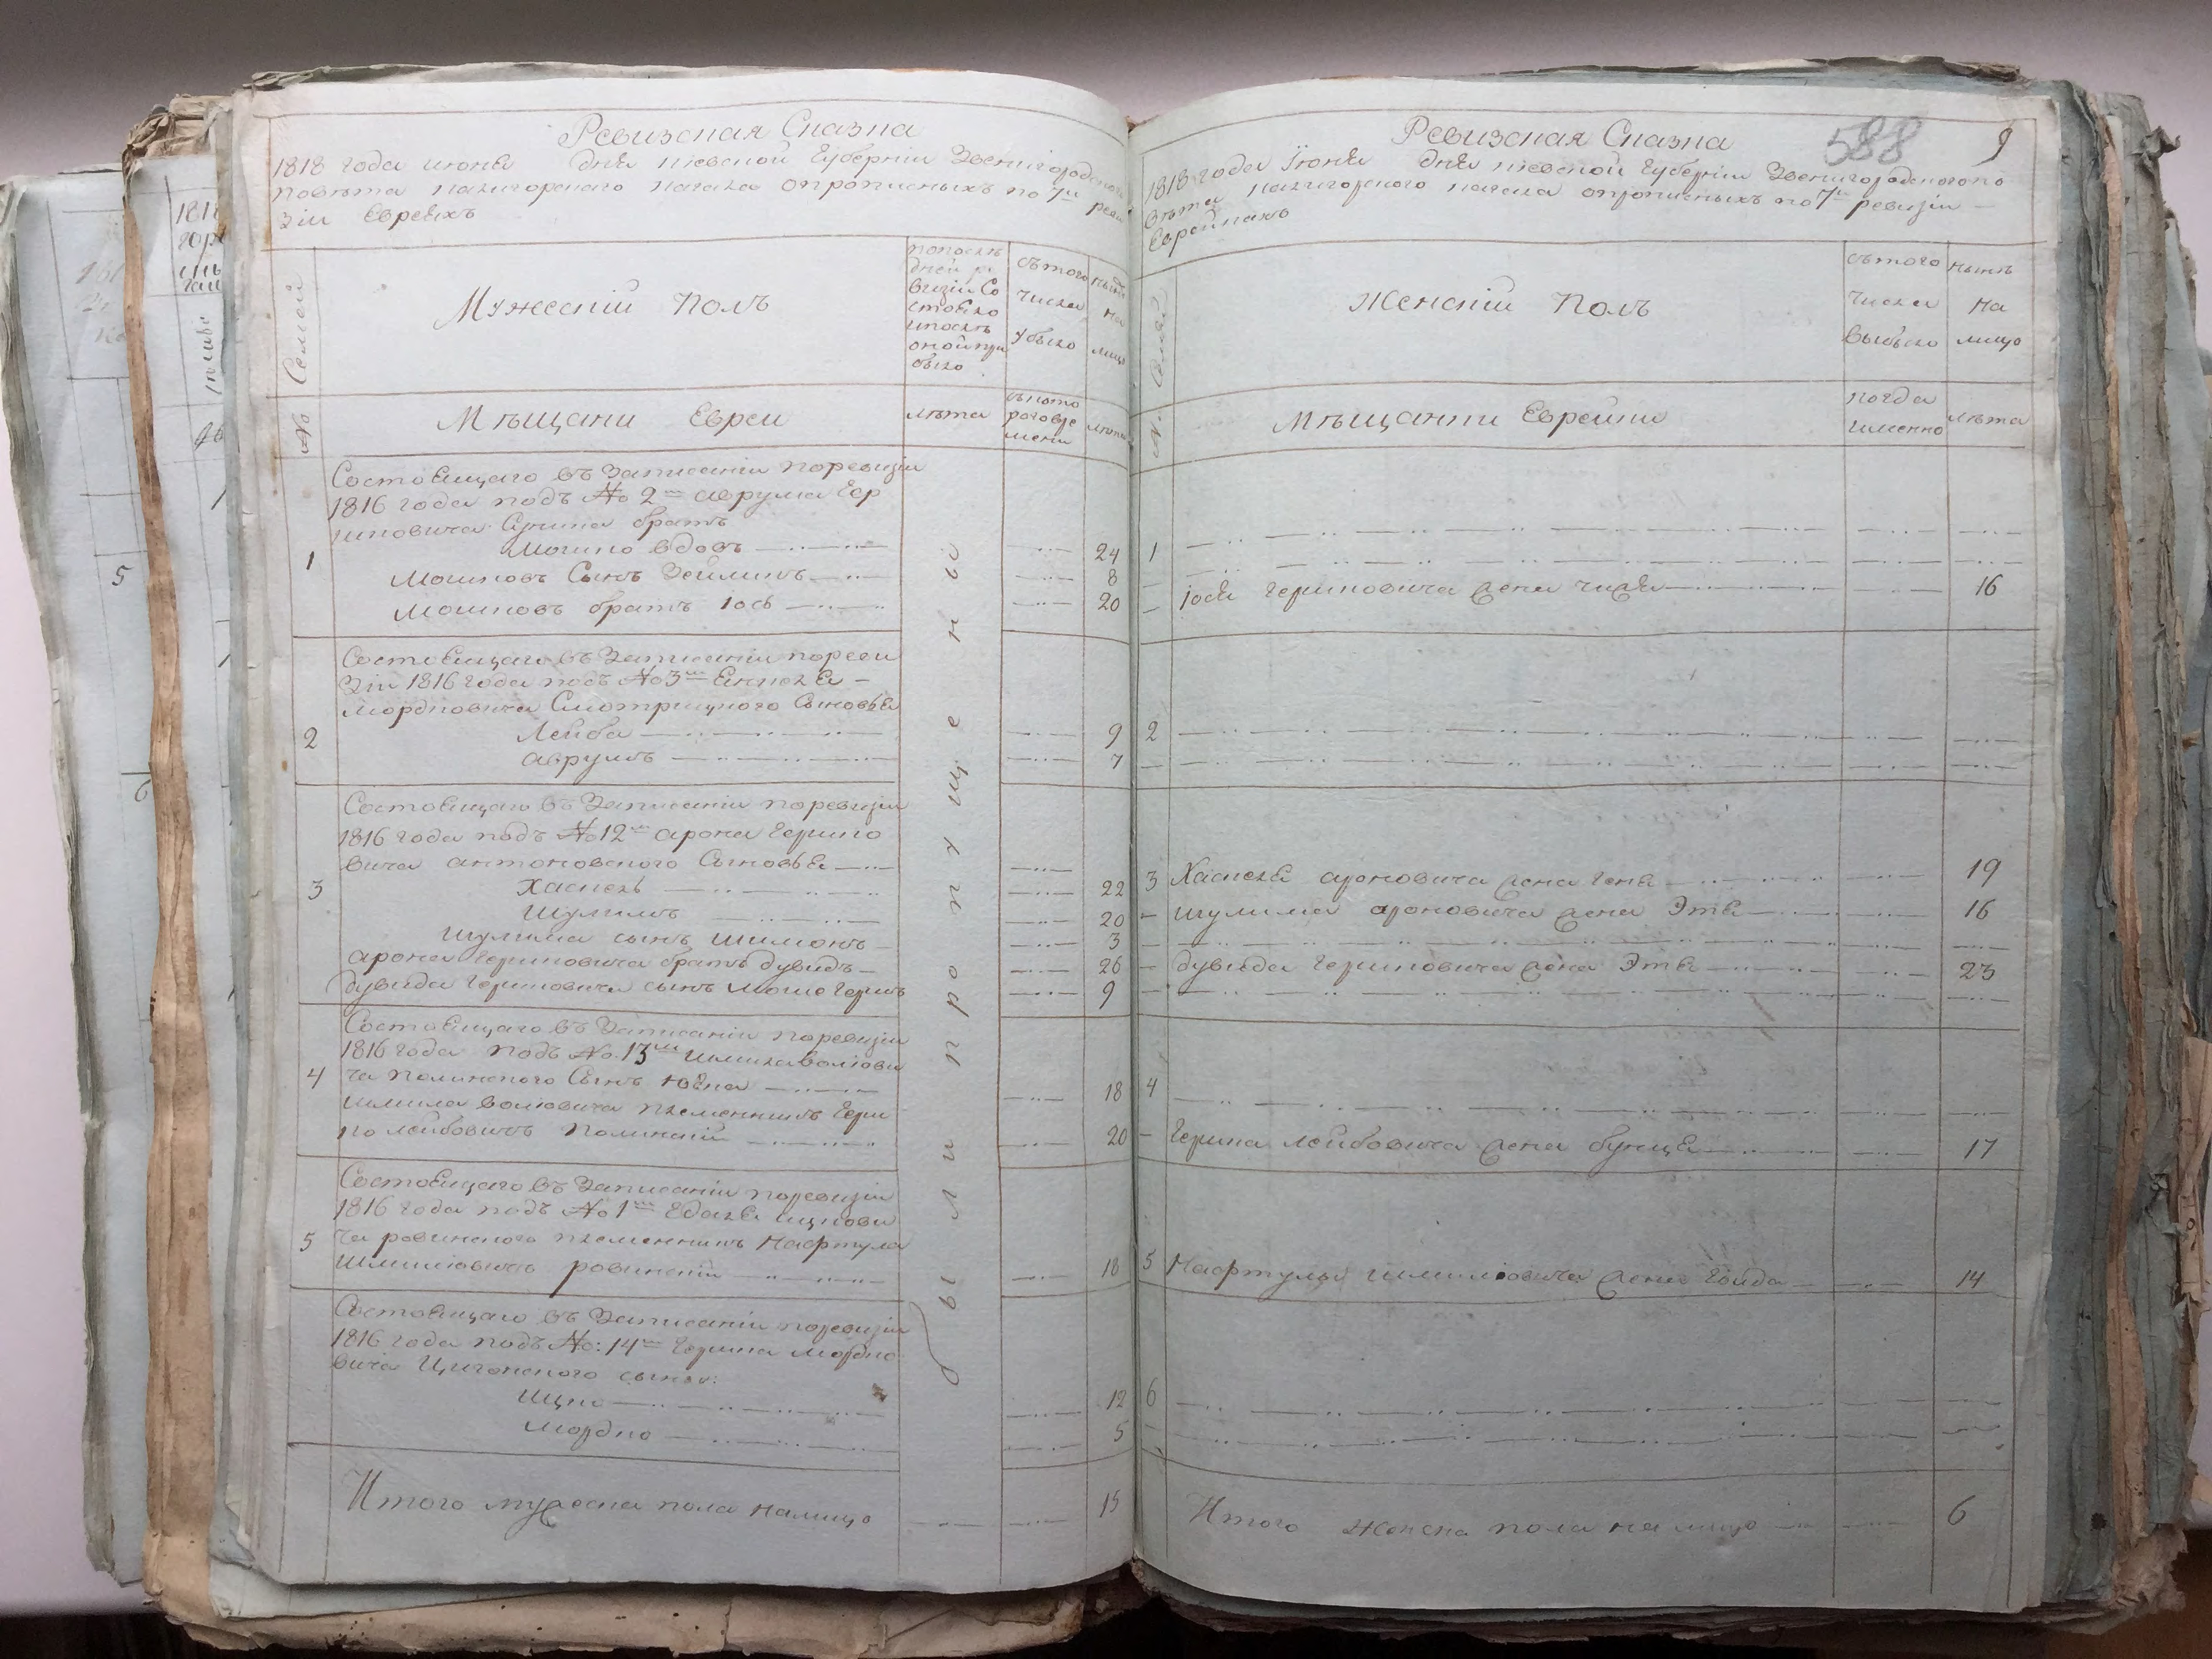 Ревизская Сказка
1818 года июня дня киевской Губернии Звенигородского
повѣта калигорского кагала опрописныхъ по 7й реви
зіи Евреяхъ
№ Семей
Мужеский Полъ
попослѣ
дней ре
визіи Со
стояло
ипослѣ
оной при
было
съ того
числа
убыло
нынѣ
на
лицо
Мѣщани Евреи
лѣта
съ кото
раго вре
мени
лѣта
были пропущены
Состоящаго въ Записаніи поревизіи
1816 года подъ № 2м аврума Гер
шковича брать
1 Мошко вдовъ 24
Мошковъ Сынъ Зейликъ 8
Мошковъ братъ Іось 20
Состоящаго въ Записаніи пореви
зіи 1816 года подъ № 3м Янкеля
Мордковича Смотрицкого Сыновья
2 Лейба 9
аврумъ 7
Состоящаго въ Записаніи поревизіи
1816 года подъ № 12м арона Гершко
вича антоновского Сыновья
3 Хаскель 22
Шулимъ 20
Шулима сынъ Шимонъ 3
арона Гершковича братъ дувидъ 26
дувида Гершковича сынъ Мошко Гершъ 9
Состоящаго въ Записаніи поревизіи
1816 года подъ № 13м Шмиля волкови
4 ча Полинского Сынъ 18
Шмиля волковича племенникъ Герш
ко лейбовичъ Полинский 20
Состоящаго въ Записаніи поревизіи
1816 года подъ № 1м ицкови
5 ча ровинского племенникъ Нафтула
Шмилиовичъ ровинский 18
Состоящаго въ Записаніи поревизіи
1816 года подъ №: 14м Гершка Мордко
вича Циганского сыновья:
Ицко 12
Мордко 5
Итого мужеска пола налицо 15
Ревизская Сказка
588
9
1818 года Іюня дня киевской Губерніи Звенигородского по
вѣта калигорского кагала опрописныхъ по 7й ревизіи
Еврейкахъ
№ Семей
Женский Полъ
съ того
числа
выбыло
нынѣ
на
лицо
Мѣщанки Еврейки
когда
именно
лѣта
1
Іося Гершковича жена 16
2
3 Хаскеля ароновича жена Геня 19
Шулима ароновича жена Этя 16
дувида Гершковича жена Этя 23
4
Гершка лейбовича жена бунця 17
5 Нафтулы Шмилиовича жена 14
6
Итого женска пола на лицо 6